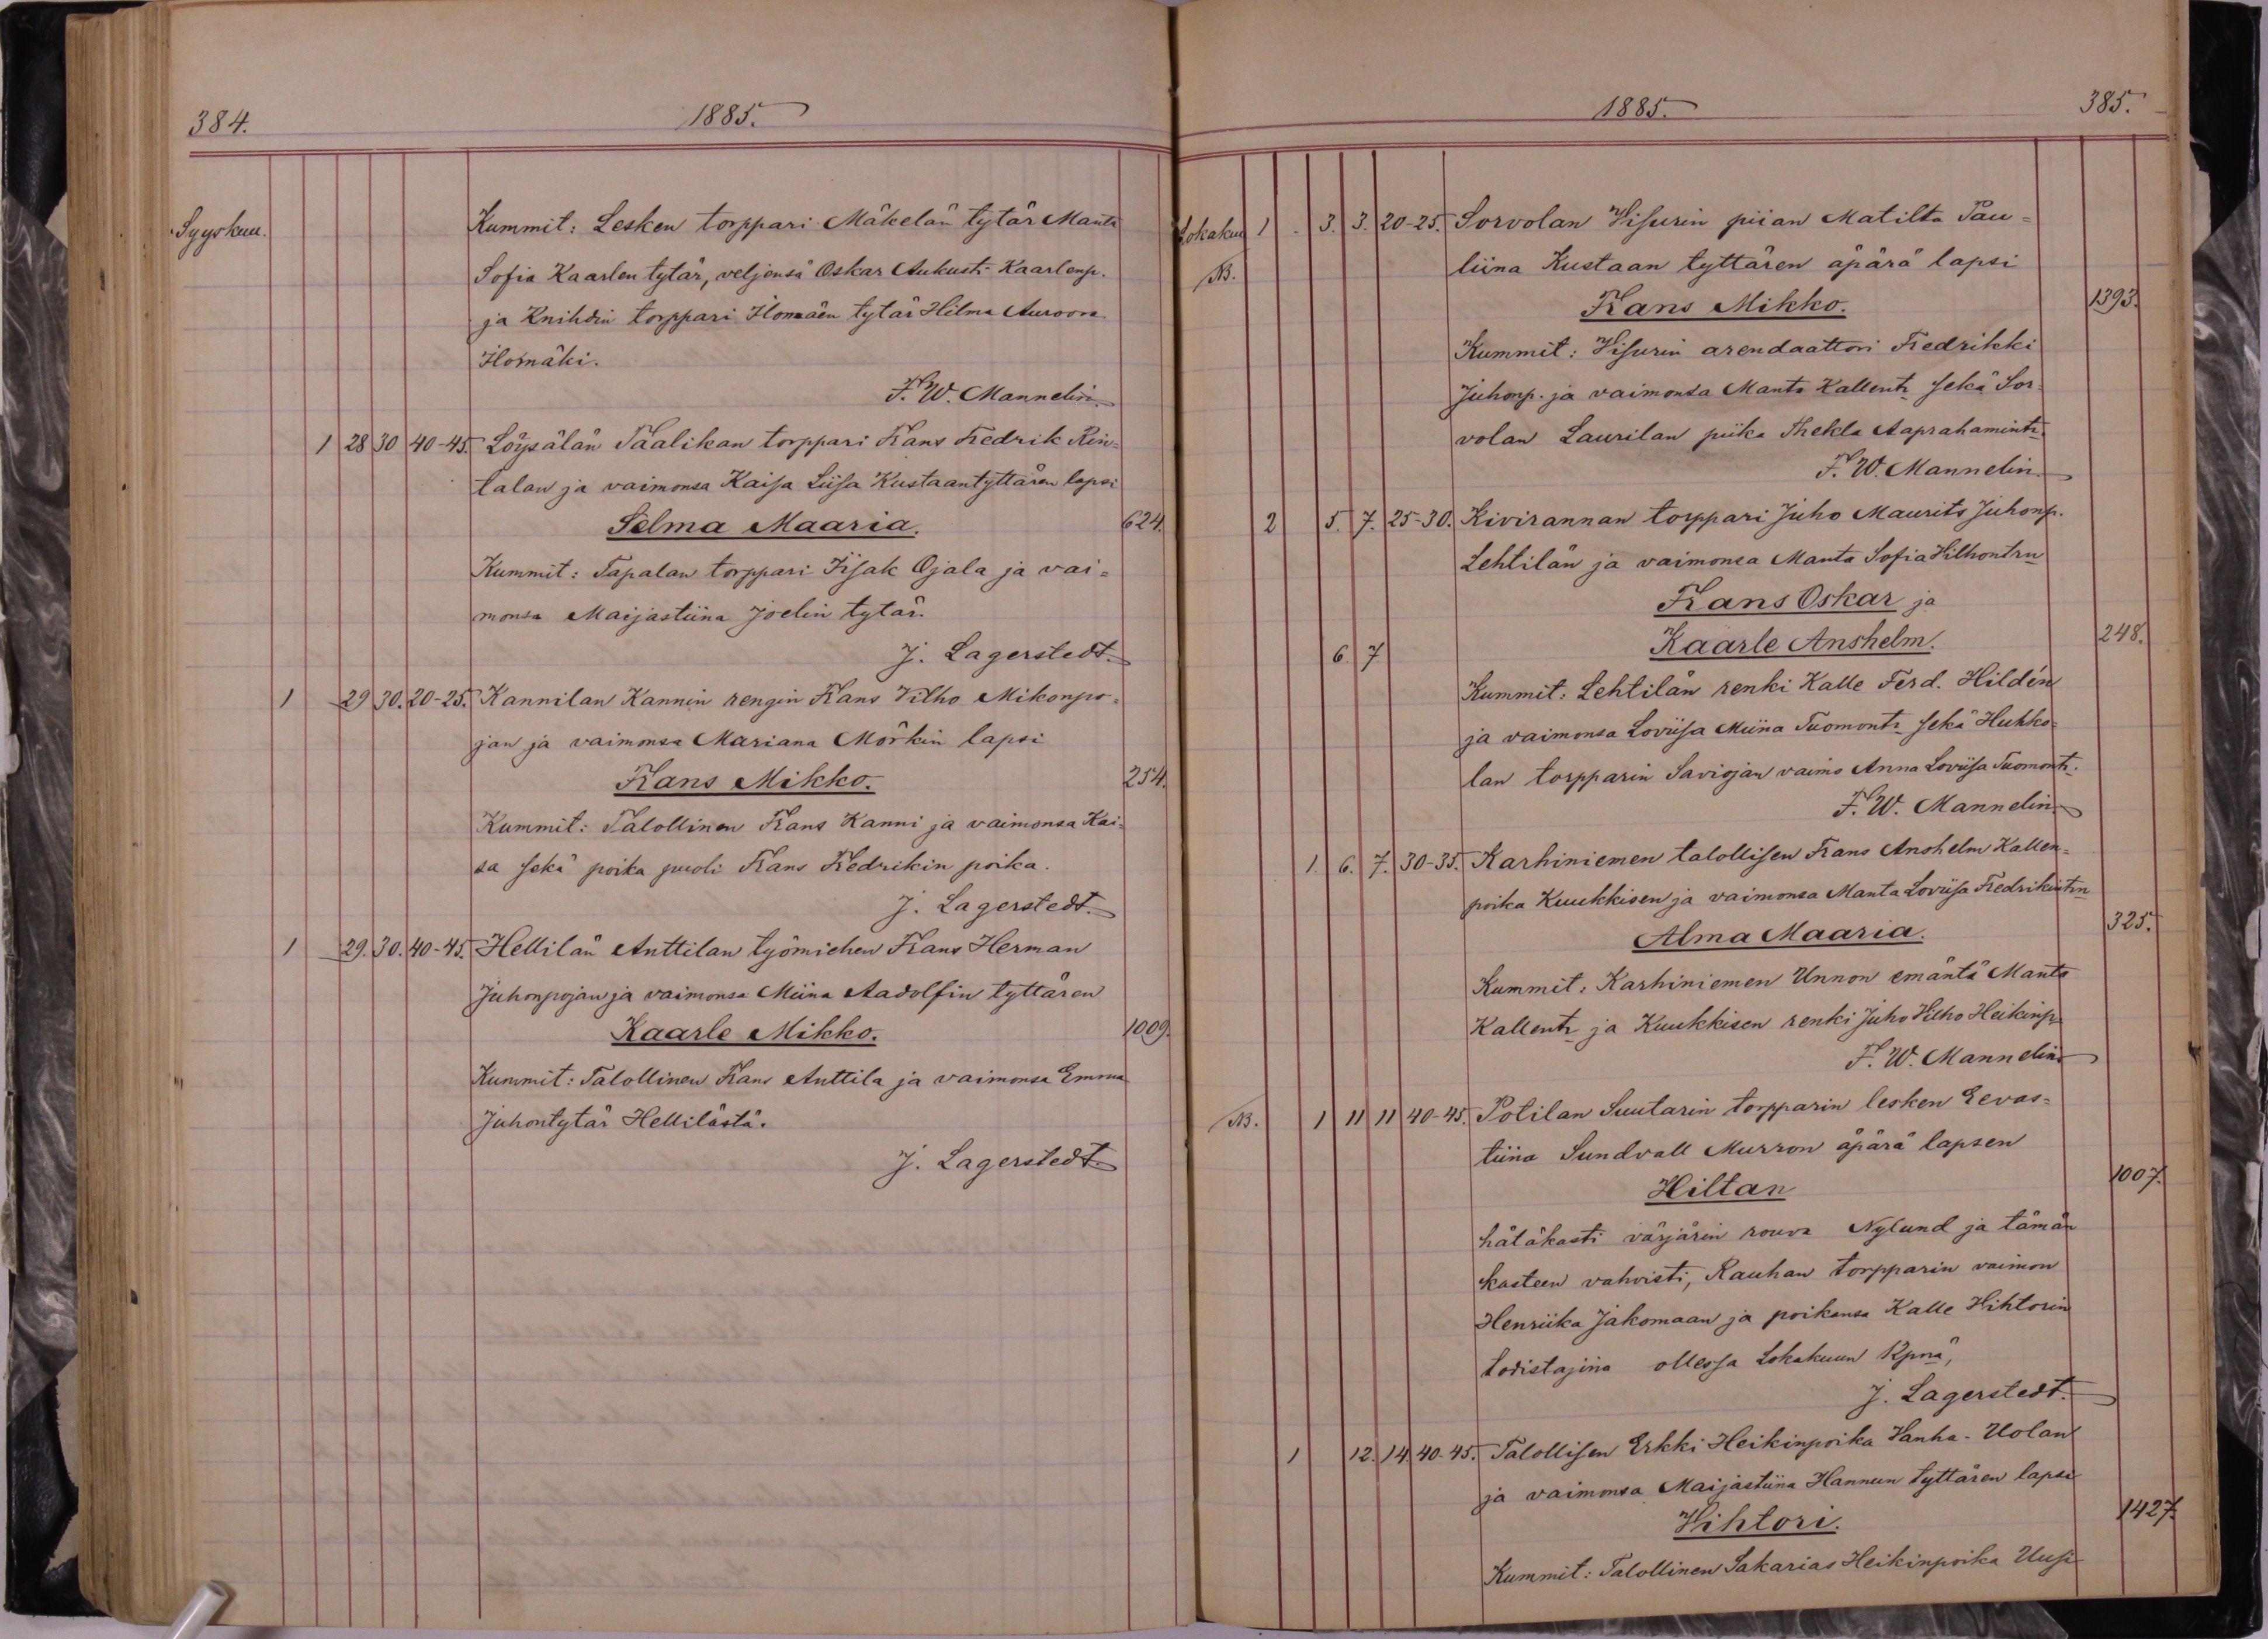 384.
1885.
Syyskuu.
Kummit: Lesken torppari Mäkelän tytär Manta
Sofia Kaarlen tytär, veljensä Oskar Aukusti Kaarlenp.
ja Knihdin torppari Ilomäen tytär Hilma Auroora
Ilomäki.
F. W. Mannelin.
1 28 30 40-45. Löysälän Taalikan torppari Frans Fredrik Rin-
talan ja vaimonsa Kaisa Liisa Kustaantyttären lapsi
Selma Maaria. 624.
Kummit: Tapalan torppari Iisak Ojala ja vai=
monsa Maijastiina Joelin tytär.
J. Lagerstedt.
1 29 30. 20-25. Kannilan Kannin rengin Frans Vilho Mikonpo=
jan ja vaimonsa Mariana Mörkin lapsi
Frans Mikko. 254.
Kummit: Talollinen Frans Kanni ja vaimonsa Kai=
sa sekä poika puoli Frans Fredrikin poika.
J. Lagerstedt.
1 29. 30. 40-45. Hellilän Anttilan työmiehen Frans Herman
Juhonpojan ja vaimonsa Miina Aadolfin tyttären
Kaarle Mikko. 1009.
Kummit: Talollinen Frans Anttila ja vaimonsa Emma
Juhontytär Hellilästä.
J. Lagerstedt.
1885.
385.
Lokakuu 1 3. 3. 20-25. Sorvolan Visurin piian Matilta Pau=
NB. liina Kustaan tyttären äpärä lapsi
Frans Mikko. 1393.
Kummit: Visurin arendaattori Fredrikki
Juhonp. ja vaimonsa Manta Kallentr sekä Sor-
volan Laurilan piika Thekla Aaprahamintr.
F. W. Mannelin.
2 5. 7. 25-30. Kivirannan torppari Juho Maurits Juhonp.
Lehtilän ja vaimonsa Manta Sofia Vilhontrn
Frans Oskar ja
6 7 Kaarle Anshelm. 248.
Kummit: Lehtilän renki Kalle Ferd. Hildén
ja vaimonsa Loviisa Miina Tuomontr sekä Huhko=
lan torpparin Saviojan vaimo Anna Loviisa Tuomontr.
F. W. Mannelin.
1. 6. 7. 30-35. Karhiniemen talollisen Frans Anshelm Kallen=
poika Kuukkisen ja vaimonsa Manta Loviisa Fredrikintrn
Alma Maaria. 325.
Kummit: Karhiniemen Unnon emäntä Manta
Kallentr ja Kuukkisen renki Juho Vilho Heikinp.
F. W. Mannelin
NB. 1 11 11 40-45. Potilan Suutarin torpparin lesken Eevas=
tiina Sundvall Murron äpärä lapsen
Hiltan 1007.
hätäkasti värjärin rouva Nylund ja tämän
kasteen vahvisti, Rauhan torpparin vaimon
Henriika Jakomaan ja poikansa Kalle Vihtorin
todistajina ollessa Lokakuun 12pnä,
J. Lagerstedt.
1 12. 14. 40-45. Talollisen Erkki Heikinpoika Vanha-Uolan
ja vaimonsa Maijastiina Hannun tyttären lapsi
Vihtori. 1427.
Kummit: Talollinen Sakarias Heikinpoika Uusi